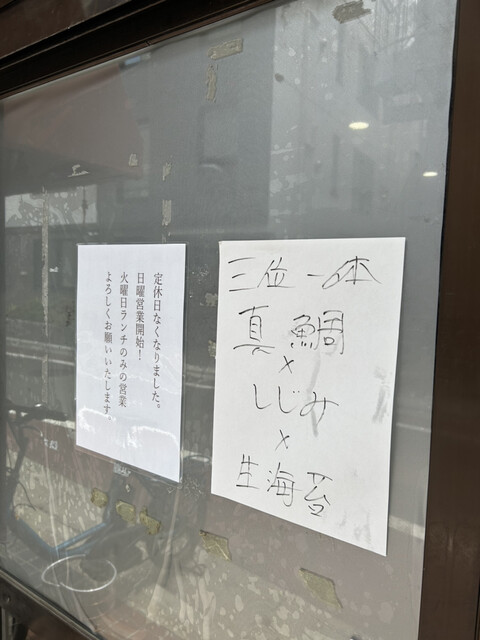 定休日なくなりました。
日曜営業開始！
火曜日ランチのみの営業
よろしくお願いいたします。
三位一体
真鯛
×
しじみ
×
生海苔